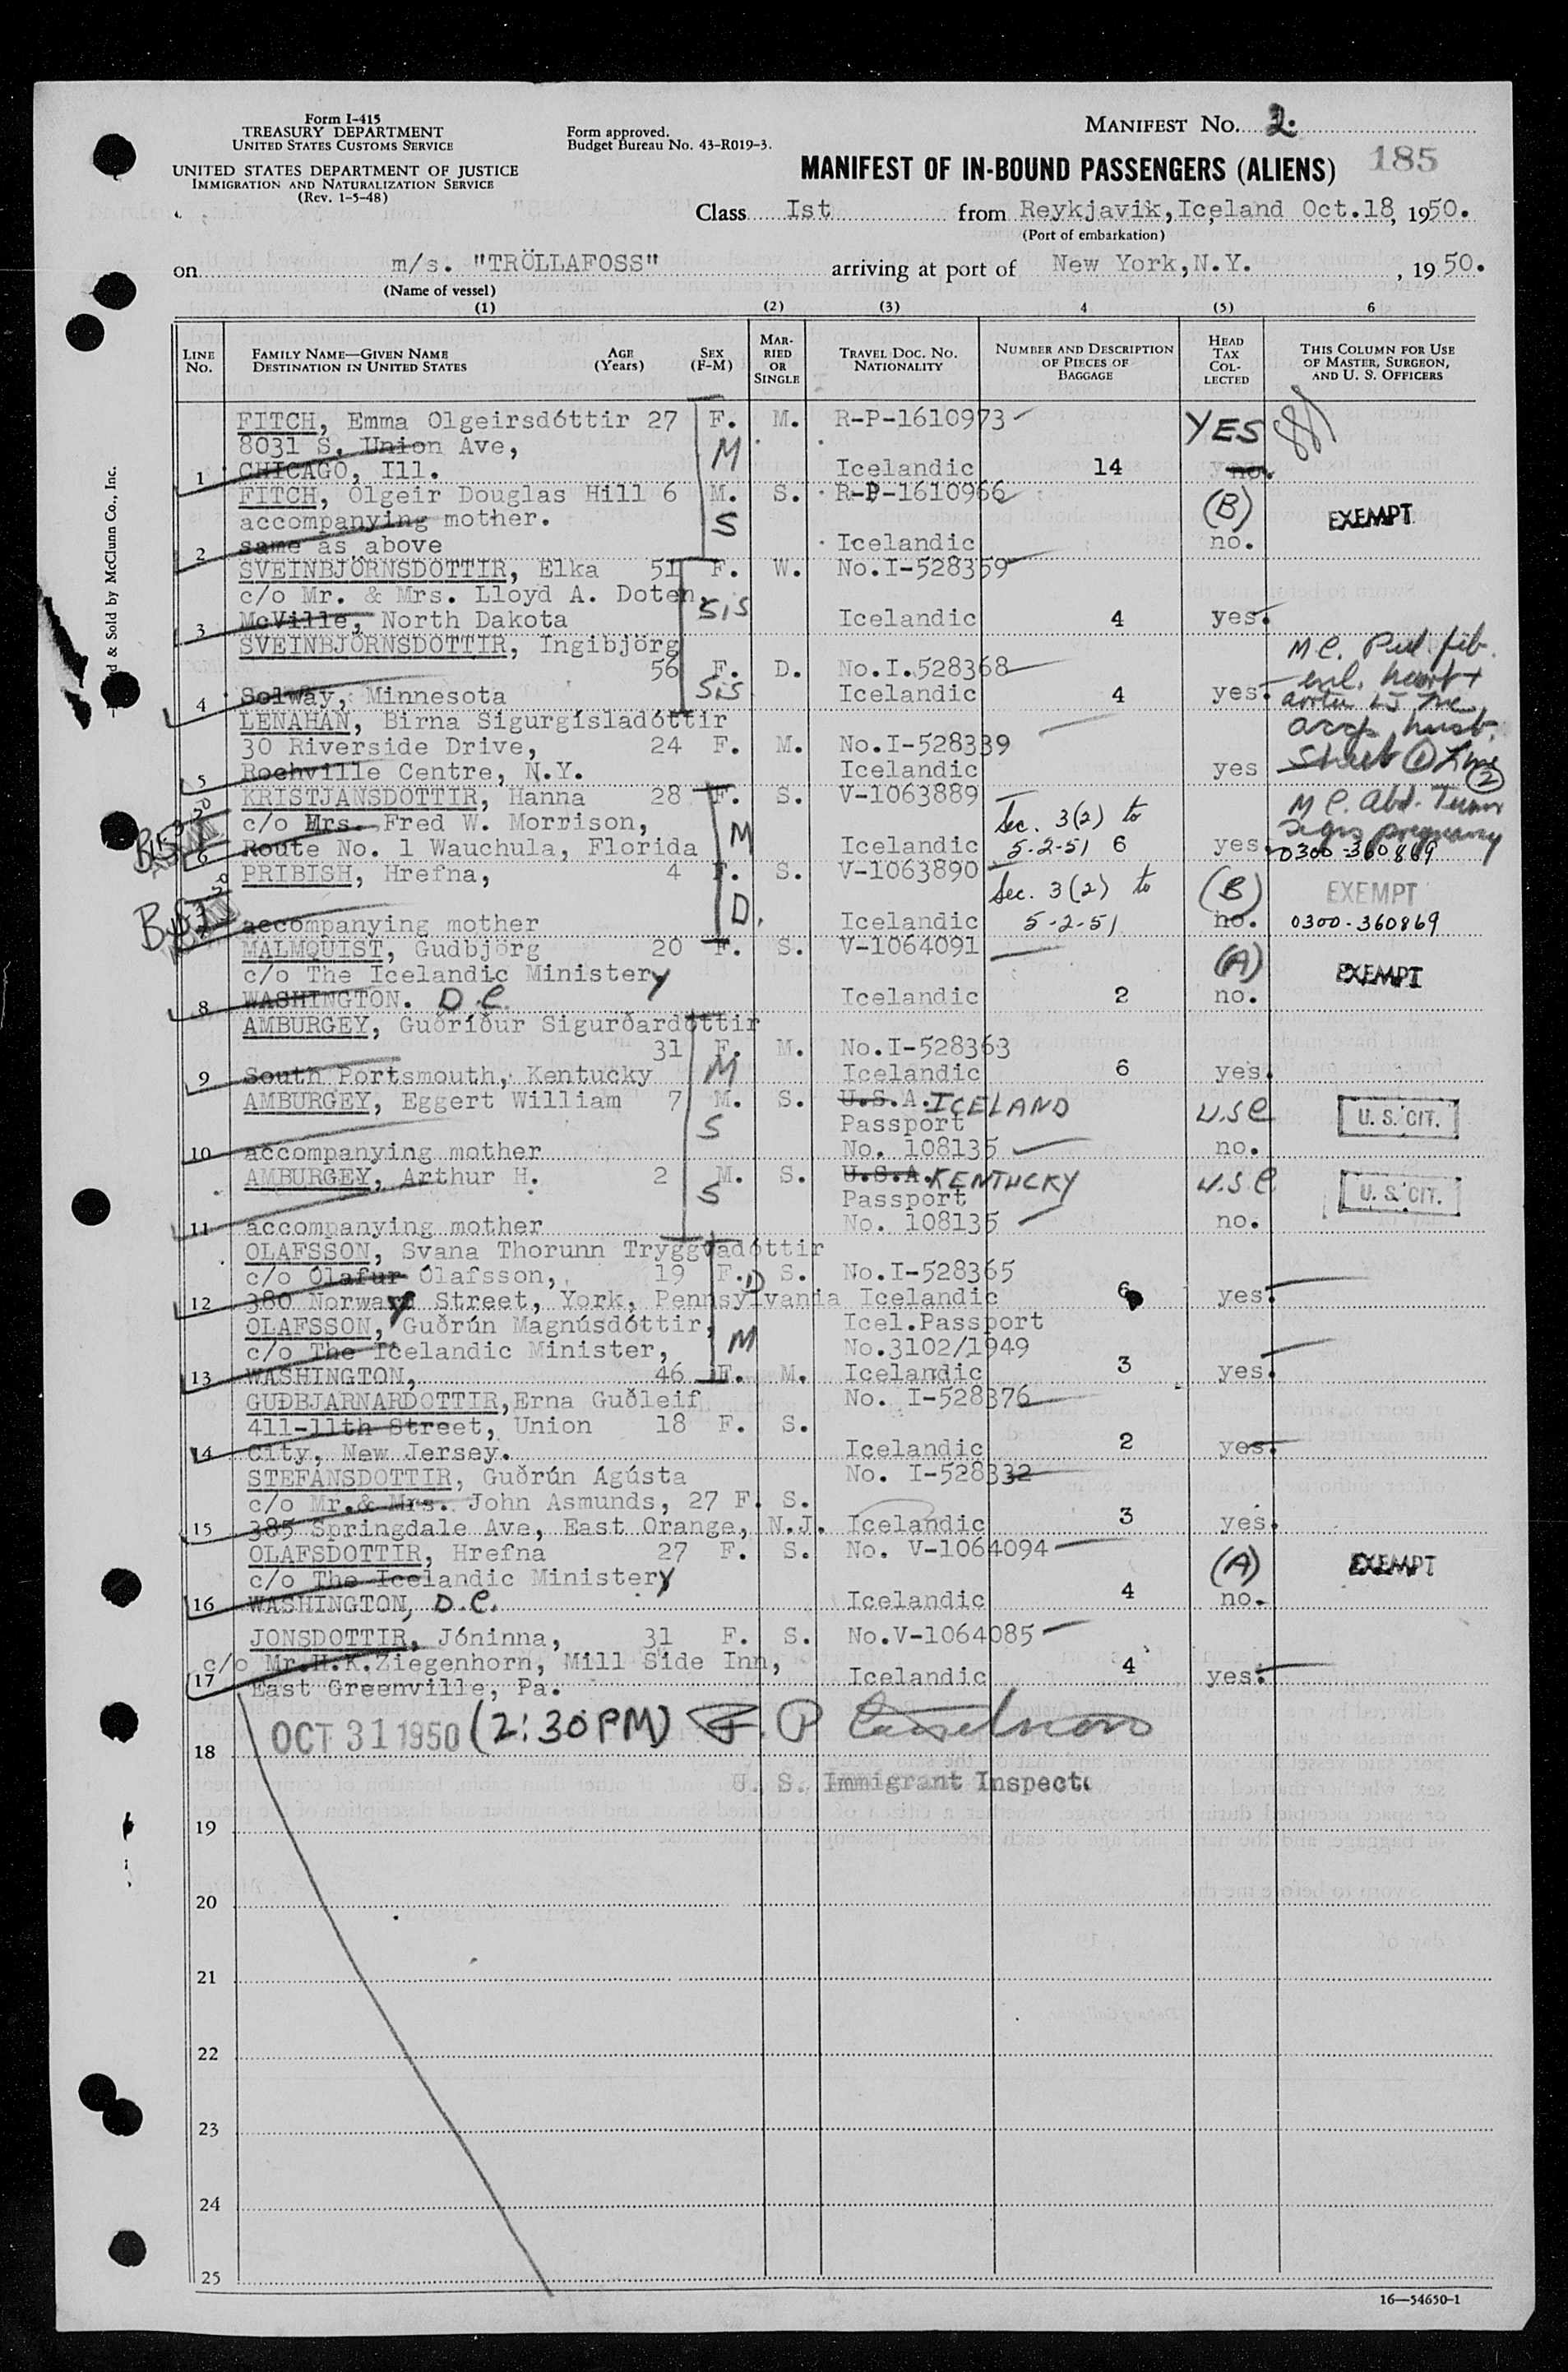 Form I-415
TREASURY DEPARTMENT
UNITED STATES CUSTOMS SERVICE
UNITED STATES DEPARTMENT OF JUSTICE
IMMIGRATION AND NATURALIZATION SERVICE
(Rev. 1-5-48)
Form approved.
Budget Bureau No. 43-R019-3.
MANIFEST No. 2.
MANIFEST OF IN-BOUND PASSENGERS (ALIENS) 185
Class Ist from Reykjavik, Iceland Oct.18, 1950.
(Port of embarkation)
on m/s. "TRÖLLAFOSS" arriving at port of New York, N.Y. , 1950.
(Name of vessel)
(1) (2) (3) 4 (5) 6
LINE No. FAMILY NAME—GIVEN NAME DESTINATION IN UNITED STATES AGE (Years) SEX (F-M) MARRIED OR SINGLE TRAVEL DOC. NO. NATIONALITY NUMBER AND DESCRIPTION OF PIECES OF BAGGAGE HEAD TAX COLLECTED THIS COLUMN FOR USE OF MASTER, SURGEON, AND U. S. OFFICERS
d & Sold by McClunn Co., Inc.
FITCH, Emma Olgeirsdóttir 27 F. M. R-P-1610973 YES
8031 S. Union Ave, M
1 CHICAGO, Ill. Icelandic 14 no.
FITCH, Olgeir Douglas Hill 6 M. S. R-P-1610966 (B) EXEMPT
accompanying mother. S
2 same as above Icelandic no.
SVEINBJÖRNSDOTTIR, Elka 51 F. W. No.I-528359
c/o Mr. & Mrs. Lloyd A. Doten, Sis
3 McVille, North Dakota Icelandic 4 yes.
SVEINBJÖRNSDOTTIR, Ingibjörg M C. Pul. fib.
56 F. D. No.I.528368 enl. heart +
4 Solway, Minnesota Sis Icelandic 4 yes. aorta
LENAHAN, Birna Sigurgísladóttir
30 Riverside Drive, 24 F. M. No.I-528339 accp. husb.
5 Rochville Centre, N.Y. Icelandic yes Sheet 1 Line 2
KRISTJANSDOTTIR, Hanna 28 F. S. V-1063889 M C. Abd. Tumor
c/o Mrs. Fred W. Morrison, M Sec. 3(2) to signs pregnancy
6 Route No. 1 Wauchula, Florida Icelandic 5-2-51 6 yes. 0300-360869
PRIBISH, Hrefna, 4 F. S. V-1063890 Sec. 3(2) to (B) EXEMPT
7 accompanying mother D. Icelandic 5-2-51 no. 0300-360869
MALMQUIST, Gudbjörg 20 F. S. V-1064091 (A)
c/o The Icelandic Ministery EXEMPT
8 WASHINGTON. D.C. Icelandic 2 no.
AMBURGEY, Guðríður Sigurðardóttir
31 F. M. No.I-528363
9 South Portsmouth, Kentucky M Icelandic 6 yes.
AMBURGEY, Eggert William 7 M. S. U.S.A. ICELAND U.S.C U. S. CIT.
S Passport
10 accompanying mother No. 108135 no.
AMBURGEY, Arthur H. 2 M. S. U.S.A. KENTUCKY U.S.C U. S. CIT.
S Passport
11 accompanying mother No. 108135 no.
OLAFSSON, Svana Thorunn Tryggvadóttir
c/o Ólafur Ólafsson, 19 F. D S. No.I-528365
12 380 Norway Street, York, Pennsylvania Icelandic 6 yes.
OLAFSSON, Guðrún Magnúsdóttir, Icel.Passport
c/o The Icelandic Minister, M No.3102/1949
13 WASHINGTON, 46 F. M. Icelandic 3 yes.
GUÐBJARNARDOTTIR, Erna Guðleif No. I-528376
411-11th Street, Union 18 F. S.
14 City, New Jersey. Icelandic 2 yes.
STEFÁNSDOTTIR, Guðrún Ágústa No. I-528332
c/o Mr.& Mrs. John Asmunds, 27 F. S.
15 385 Springdale Ave, East Orange, N.J. Icelandic 3 yes.
OLAFSDOTTIR, Hrefna 27 F. S. No. V-1064094 (A) EXEMPT
c/o The Icelandic Ministery
16 WASHINGTON, D.C. Icelandic 4 no.
JONSDOTTIR, Jóninna, 31 F. S. No.V-1064085
c/o Mr.H.K.Ziegenhorn, Mill Side Inn,
17 East Greenville, Pa. Icelandic 4 yes.
18 OCT 31 1950 (2:30PM) F. P.
U. S. Immigrant Inspect
19
20
21
22
23
24
25
16—54650-1